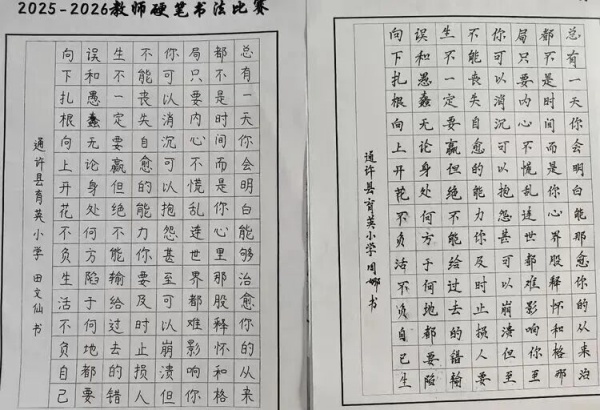 2025-2026教师硬笔书法比赛
总有一天你会明白能够治愈你的从来
都不是时间而是你心里那股释怀和格
局只要内心不慌乱连世界都难影响你
你可以消沉可以抱怨甚至可以崩溃但
不能丧失自愈的能力你要及时止损人
生不一定要赢但绝不能输给过去的错
误和愚蠢无论身处何方陷于何地都要
向下扎根向上开花不负生活不负自己
通许县育英小学 田文仙书
总有一天你会明白能那愈你的从来治
都不是时间而是你心界股释怀和格那
局只要内心不慌乱连世都难影响你至
你可以消沉可以抱怨甚可以崩溃但至
不能丧失自愈的能力你及时止损人要
生不一定要赢但绝不能给过去的错输
误和愚蠢无论身处何方于何地都要陷
向下扎根向上开花不负活不负自己生
通许县育英小学周娜书